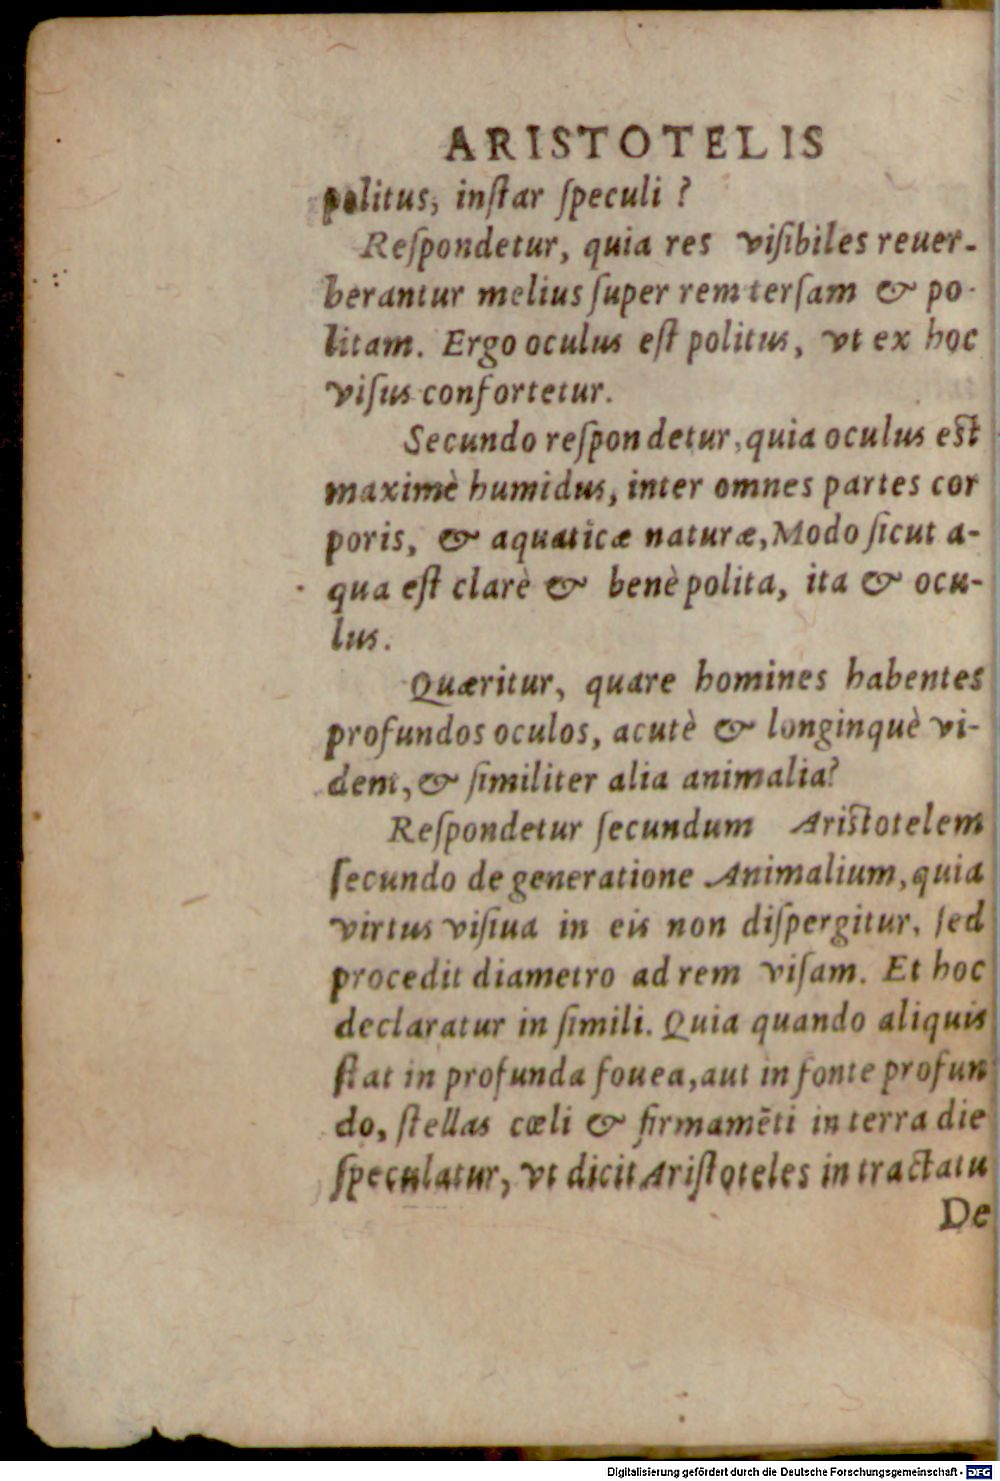 ARISTOTELIS
politus, inſtar ſpeculi ?
Reſpondetur, quia res viſibiles reuer-
berantur melius ſuper rem terſam & po-
litam. Ergo oculus eſt politus, vt ex hoc
viſus confortetur.
Secundo reſpondetur, quia oculus est
maximè humidus, inter omnes partes cor
poris, & aquaticæ naturæ, Modo ſicut a-
qua eſt clarè & benè polita, ita & ocu-
lus.
Quæritur, quare homines habentes
profundos oculos, acutè & longinquè vi-
dent, & ſimiliter alia animalia?
Reſpondetur ſecundum Aristotelem
ſecundo de generatione Animalium, quia
virtus viſiua in eis non diſpergitur, ſed
procedit diametro ad rem viſam. Et hoc
declaratur in ſimili. Quia quando aliquis
ſtat in profunda fouea, aut in fonte profun
do, ſtellas cœli & firmamẽti in terra die
ſpeculatur, vt dicit Ariſtoteles in tractatu
De
Digitalisierung gefördert durch die Deutsche Forschungsgemeinschaft - DFG